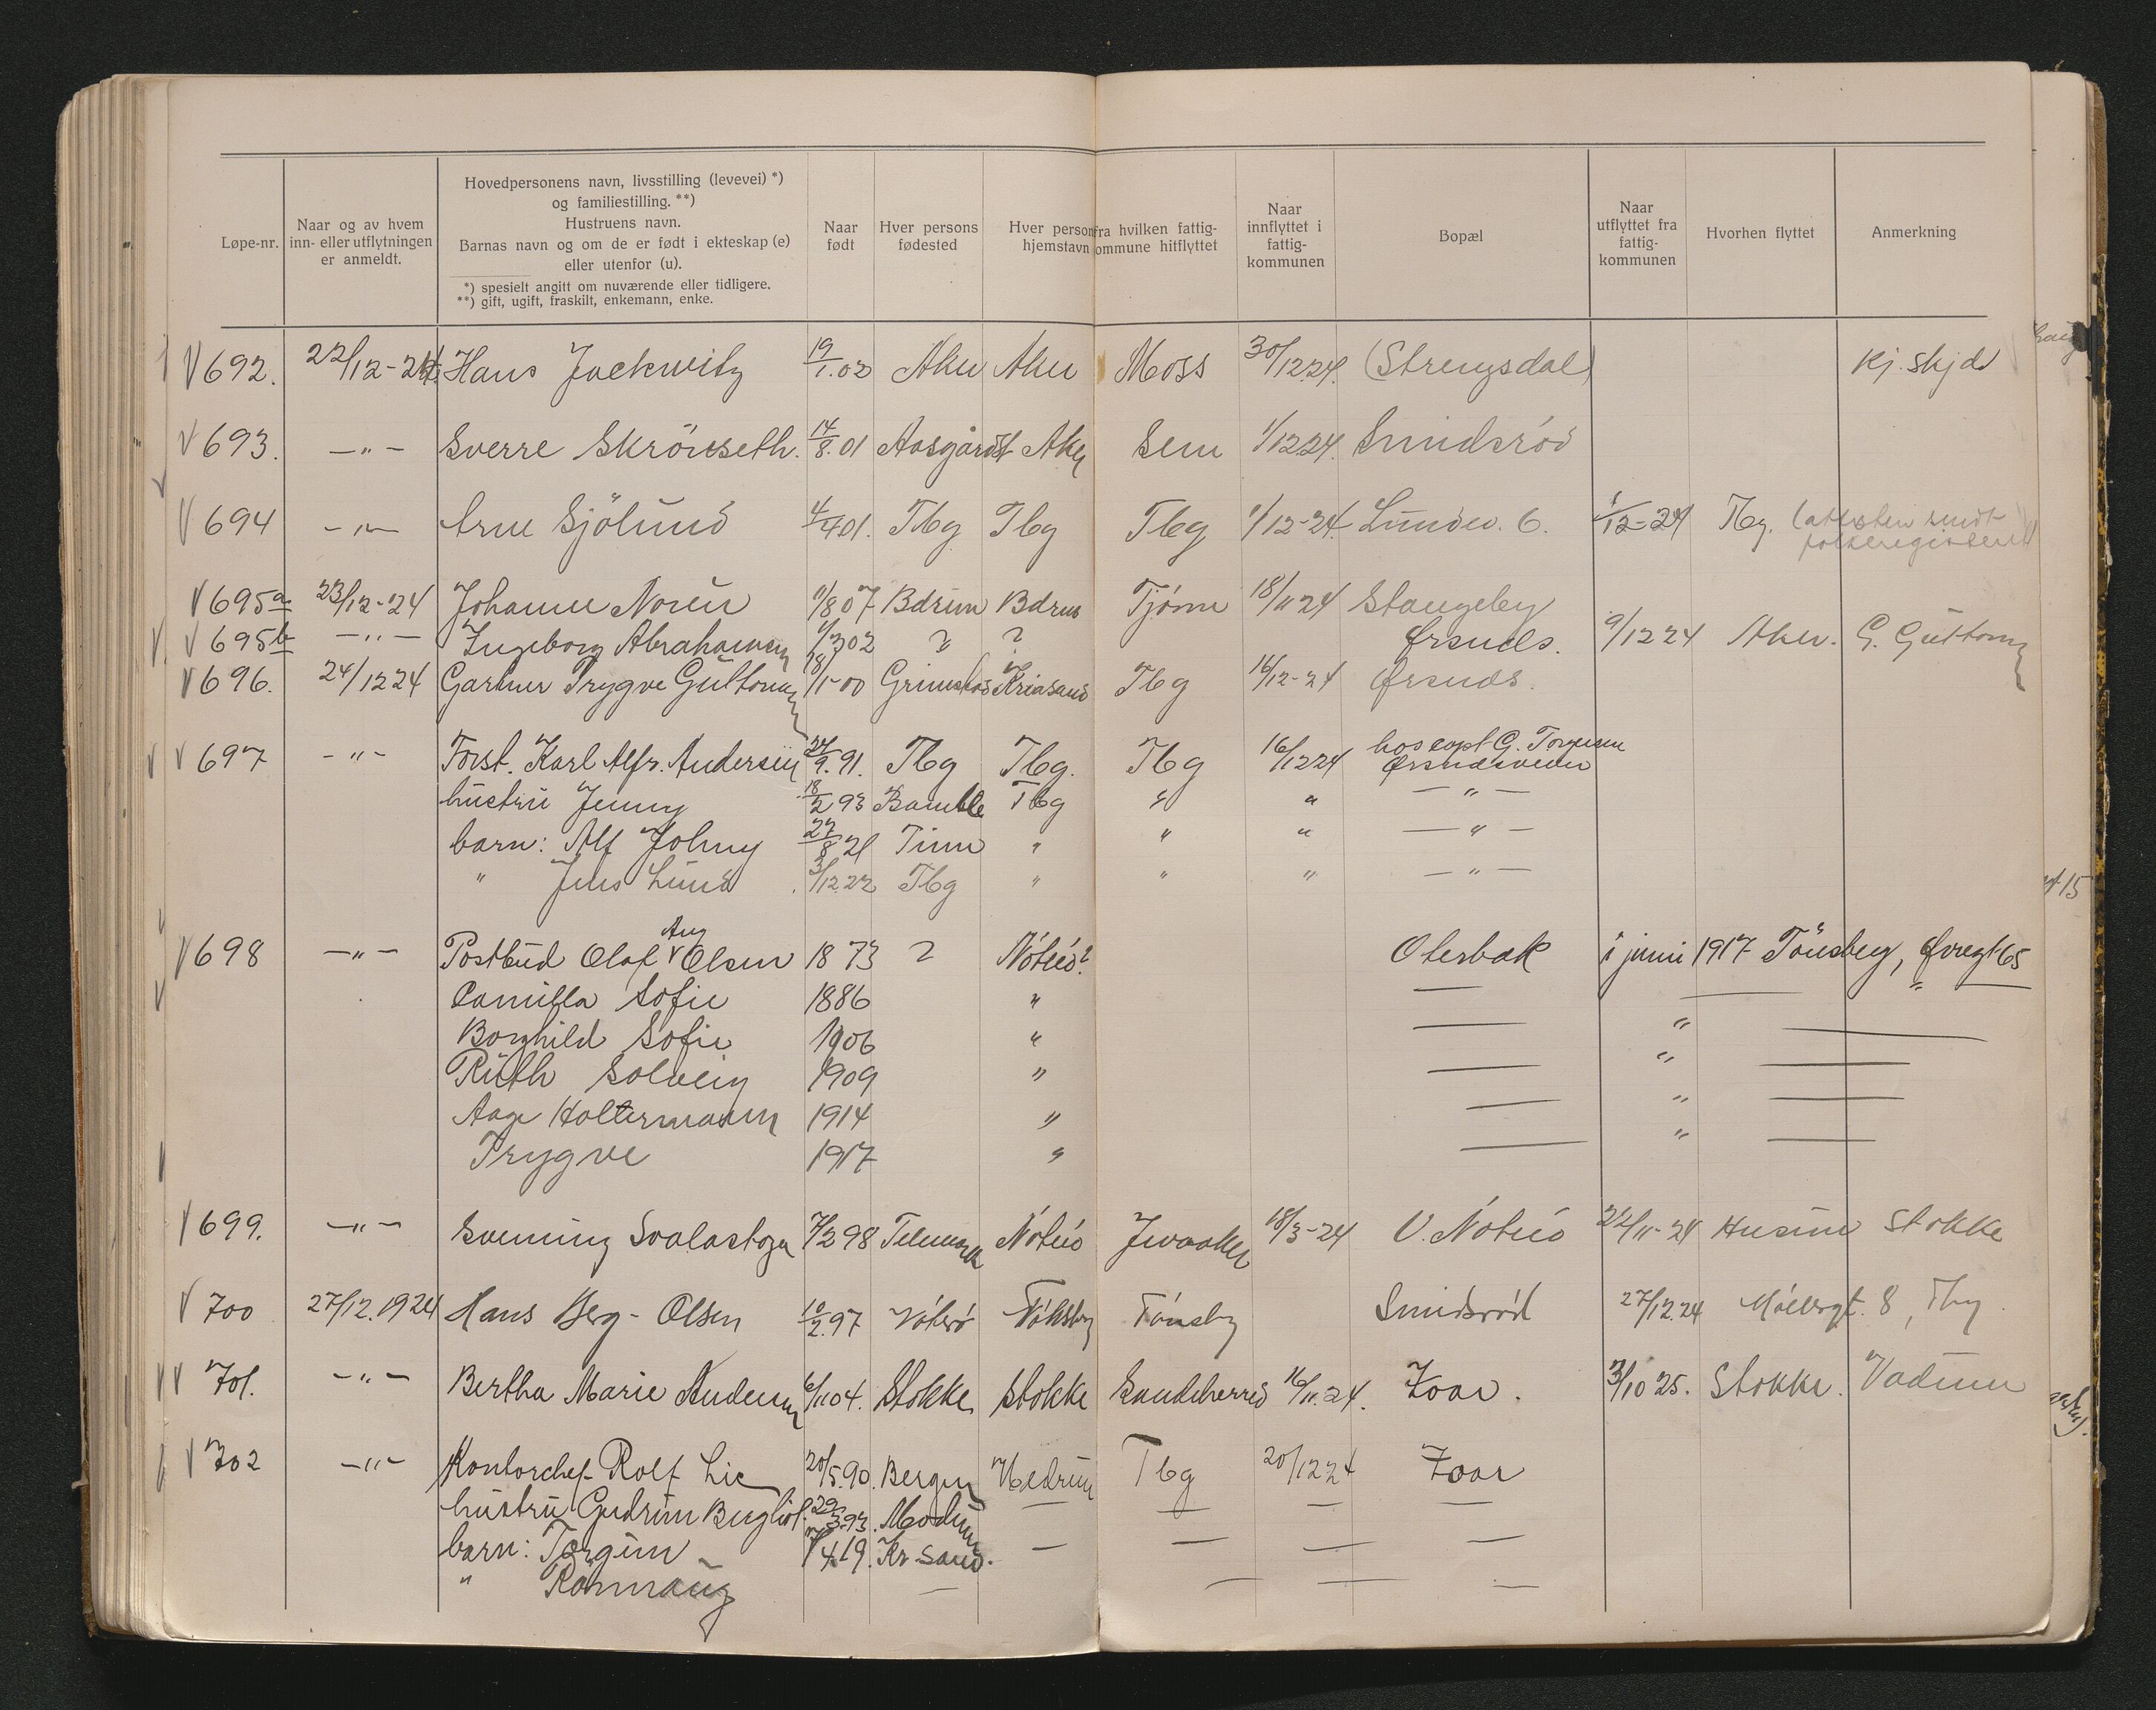 Løpe-nr.
Naar og av hvem inn- eller utflytningen er anmeldt.
Hovedpersonens navn, livsstilling (levevei) *)
og familiestilling. **)
Hustruens navn.
Barnas navn og om de er født i ekteskap (e)
eller utenfor (u).
*) spesielt angitt om nuværende eller tidligere.
**) gift, ugift, fraskilt, enkemann, enke.
Naar født
Hver persons fødested
Hver persons hjemstavn
fra hvilken fattig-
ommune hitflyttet
Naar innflyttet i fattig-kommunen
Bopæl
Naar utflyttet fra fattig-kommunen
Hvorhen flyttet
Anmerkning
V 692. 22/12-24 Hans Jackwitz 19/1.02 Aker Aker Moss 30/12.24. (Strengsdal) Kj. skjd
V 693. -"- Sverre Skrövseth. 14/8.01 Aasgårdst Aker Sem 1/12.24. Smidsrød
V 694 -"- Arne Sjölund 4/4 01. Tbg Tbg Tbg 1/12-24. Lundev. 6. 1/12-24 Tbg. (attesten sendt folkeregisteret)
V 695a 23/12-24 Johanne Noren 11/8 07 Bdrum Bdrum Tjøme 18/11 24 Stangeby
V 695b -"- Ingeborg Abrahamsen 1/3 02 ? ? Ørsnes. 9/12 24 Aker. G. Guttorms
V 696. 24/12 24 Gartner Trygve Guttorms 18/1-00 Grimstad Kriasand Tbg 16/12-24 Ørsnes.
V V 697 -"- Forst. Karl Alfr. Andersen 24/9.91. Tbg Tbg. Tbg 16/12 24 hos capt G. Torgersen
Ørsnesveien
hustru Jenny 18/2 93 Bamble Tbg " " -"-
barn: Alf Johny 27/8 21 Tinn " " " -"-
" Jens Lund 3/12.22 Tbg " " " -"-
V 698 -"- Postbud Olaf Aug Olsen 1873 ? Nøtterø? Oterbæk i juni 1917 Tönsberg, Øvregt 65
Camilla Sofie 1886 "
Borghild Sofie 1906 " "
Ruth Solveig 1909 " "
Aage Holtermann 1914 " "
Trygve 1917 " "
V 699. -"- Svenning Svalastoga 7/2 98 Telemark 18/3-24 22/11-24 Husum Stokke
V 700 27/12.1924 Hans Berg-Olsen 10/2.97 Tönsberg Smidsrød 27/12.24 Møllergt. 8, Tbg.
V V 701. -"- Bertha Marie Andersen 6/11 04. Stokke Stokke Sandeherred 16/11.24. Zoar. 3/10 25. Stokke. Vadum
V 702 -"- Kontorchef Rolf Lie 20/5.90. Bergen Hedrum Tbg 20/12 24 Zoar
hustru Gudrun 29/3.93. Modum
barn: Torgun 4.19. Kr.sand.
" Rannaug